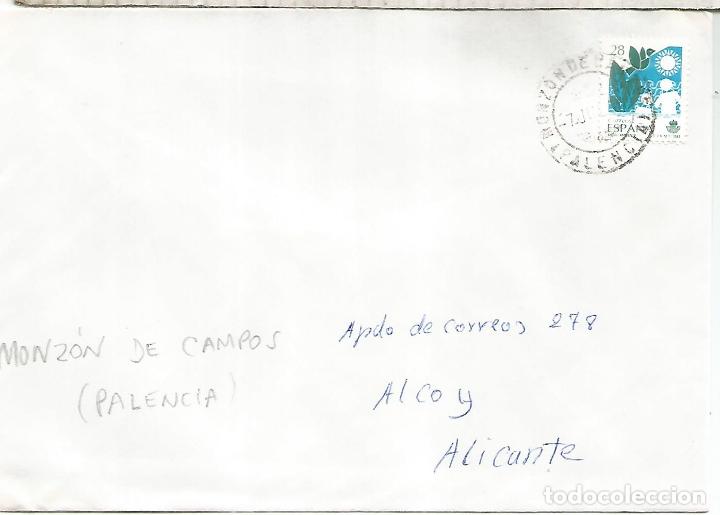 28
ESPAÑA
MONZON DE
(PALENCIA)
-7.J
MONZÓN DE CAMPOS
(PALENCIA)
Apdo de correos 278
Alcoy
Alicante
todocoleccion